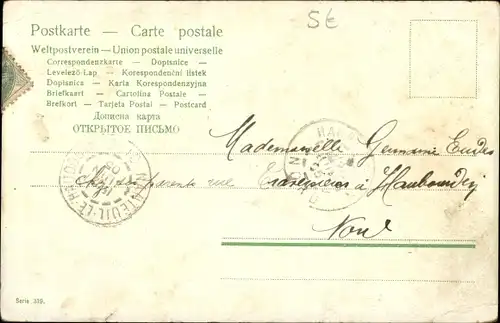 5€
Postkarte — Carte postale
Weltpostverein — Union postale universelle
Correspondenzkarte — Dopisnice —
Levelező-Lap — Korespondenční lístek
Dopisnica — Karta Korespondenzyjna
Briefkaart — Cartolina Postale —
Brefkort — Tarjeta Postal — Postcard
Дописна карта
ОТКРЫТОЕ ПИСЬМО
Mademoiselle Germaine
chez ses parents rue à Haubourdin
Nord
Serie 319.